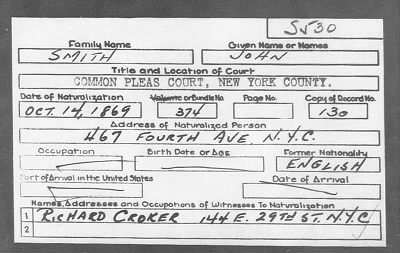 S530
Family Name Given Name or Names
SMITH JOHN
Title and Location of Court
COMMON PLEAS COURT, NEW YORK COUNTY.
Date of Naturalization Volume or Bundle No. Page No. Copy of Record No.
OCT. 14, 1869 374 130
Address of Naturalized Person
467 FOURTH AVE. N.Y.C.
Occupation Birth Date or Age Former Nationality
ENGLISH
Port of Arrival in the United States Date of Arrival
Names, Addresses and Occupations of Witnesses To Naturalization
1 RICHARD CROKER 144 E. 29TH ST. N.Y.C
2